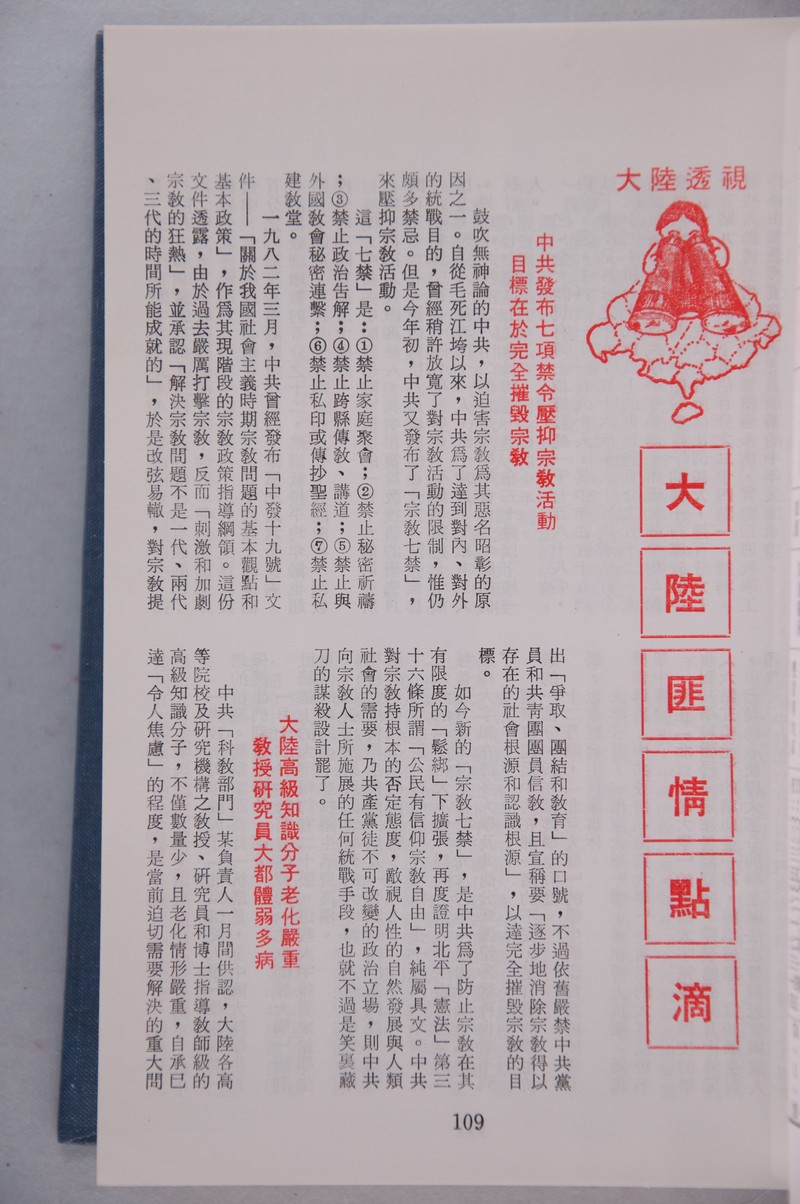 大陸透視
大陸匪情點滴
中共發布七項禁令壓抑宗教活動
目標在於完全摧毀宗教
鼓吹無神論的中共，以迫害宗教為其惡名昭彰的原
因之一。自從毛死江垮以來，中共為了達到對內、對外
的統戰目的，曾經稍許放寬了對宗教活動的限制，惟仍
頗多禁忌。但是今年初，中共又發布了「宗教七禁」，
來壓抑宗教活動。
這「七禁」是：①禁止家庭聚會；②禁止秘密祈禱
；③禁止政治告解；④禁止跨縣傳教、講道；⑤禁止與
外國教會秘密連繫；⑥禁止私印或傳抄聖經；⑦禁止私
建教堂。
一九八二年三月，中共曾經發布「中發十九號」文
件——「關於我國社會主義時期宗教問題的基本觀點和
基本政策」，作為其現階段的宗教政策指導綱領。這份
文件透露，由於過去嚴厲打擊宗教，反而「刺激和加劇
宗教的狂熱」，並承認「解決宗教問題不是一代、兩代
、三代的時間所能成就的」，於是改弦易轍，對宗教提
出「爭取、團結和教育」的口號，不過依舊嚴禁中共黨
員和共青團團員信教，且宣稱要「逐步地消除宗教得以
存在的社會根源和認識根源」，以達完全摧毀宗教的目
標。
如今新的「宗教七禁」，是中共為了防止宗教在其
有限度的「鬆綁」下擴張，再度證明北平「憲法」第三
十六條所謂「公民有信仰宗教自由」，純屬具文。中共
對宗教持根本的否定態度，敵視人性的自然發展與人類
社會的需要，乃共產黨徒不可改變的政治立場，則中共
向宗教人士所施展的任何統戰手段，也就不過是笑裏藏
刀的謀殺設計罷了。
大陸高級知識分子老化嚴重
教授研究員大都體弱多病
中共「科教部門」某負責人一月間供認，大陸各高
等院校及研究機構之教授、研究員和博士指導教師級的
高級知識分子，不僅數量少，且老化情形嚴重，自承已
達「令人焦慮」的程度，是當前迫切需要解決的重大問
109